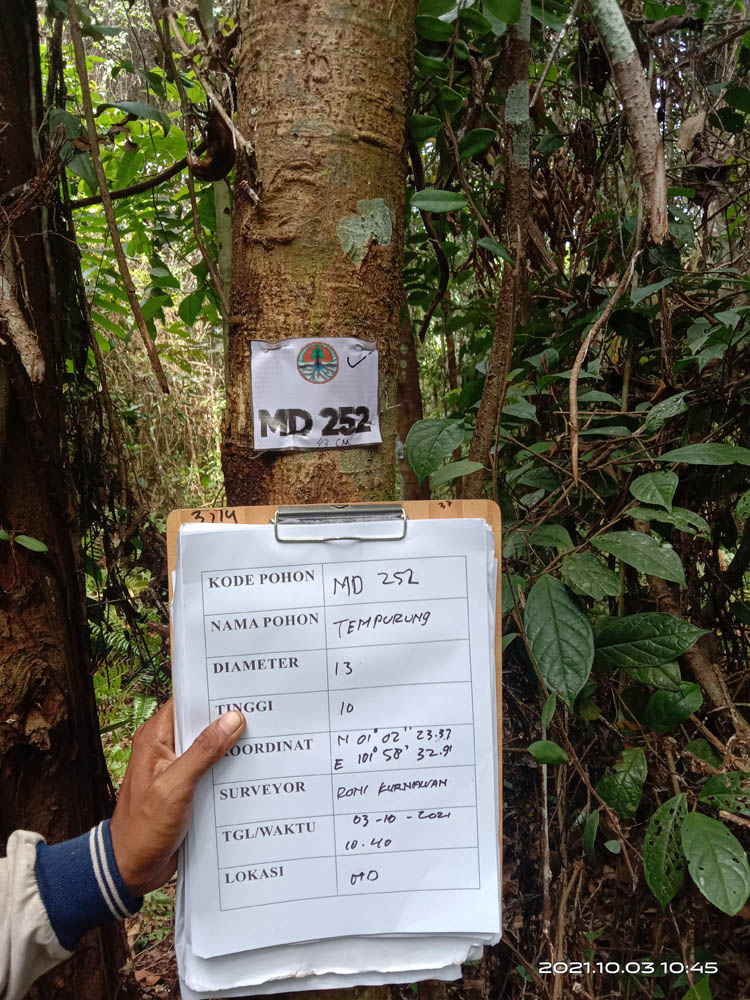 MD 252
43 CM
KODE POHON MD 252
NAMA POHON TEMPURUNG
DIAMETER 13
TINGGI 10
KOORDINAT N 01° 02" 23.37
E 101° 58' 32.91
SURVEYOR RONI KURNIAWAN
TGL/WAKTU 03-10-2021
10.40
LOKASI
2021.10.03 10:45